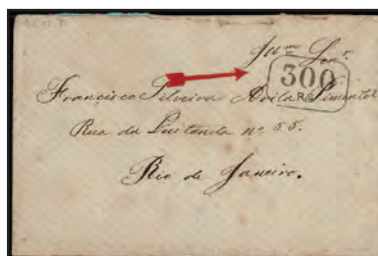 Illm Snr.
300
RS
Francisco Silveira Avila Pimentel
Rua da Quitanda nº 55.
Rio de Janeiro.